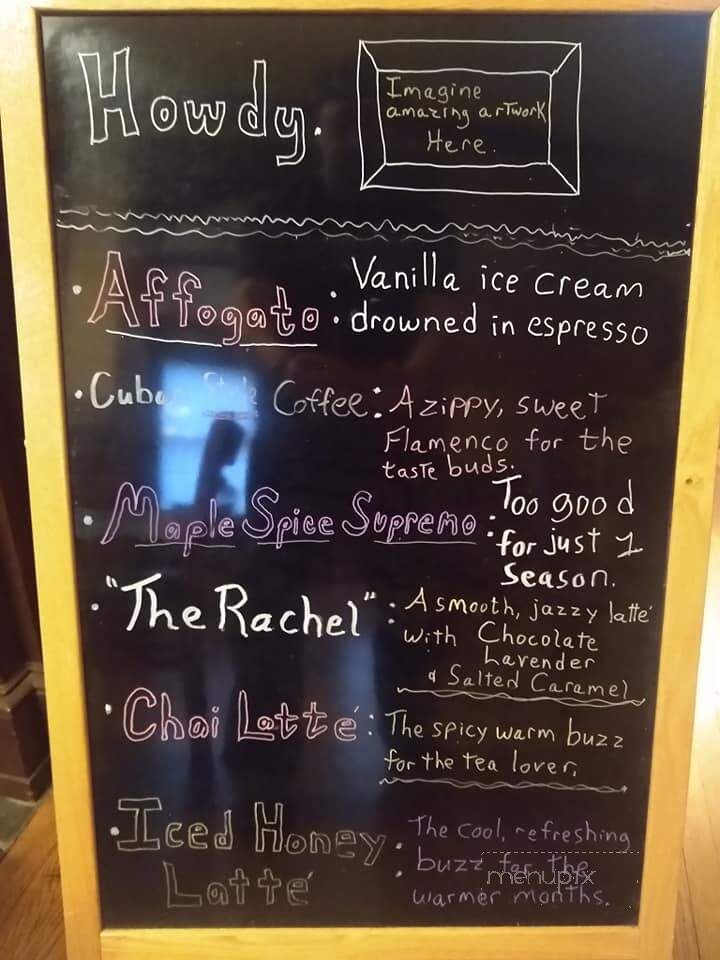 Howdy.
Imagine
amazing artwork
Here.
• Affogato : Vanilla ice cream
drowned in espresso
• Cuban Style Coffee : A zippy, sweet
Flamenco for the
taste buds.
• Maple Spice Supremo : Too good
for just 1
season.
• "The Rachel" : A smooth, jazzy latté
with Chocolate
Lavender
& Salted Caramel
• Chai Latté : The spicy warm buzz
for the tea lover.
• Iced Honey
Latté : The cool, refreshing
buzz for the
warmer months.
menupix